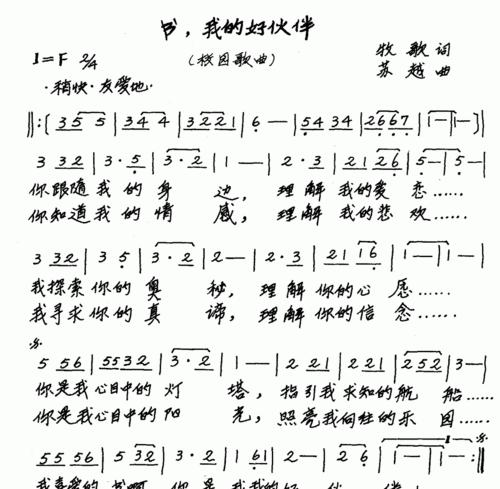 书，我的好伙伴
1=F 2/4 （校园歌曲） 牧歌 词
稍快·友爱地 苏越 曲
‖:( 35 5 | 34 4 | 3221 | 6 — | 54 34 | 2667 | 1— | 1— )|
3 32 | 3·5 | 3·2 | 1 — | 2·3 | 21 26 | 5— | 5— |
你跟随我的身边，理解我的爱恋……
你知道我的情感，理解我的悲欢……
3 32 | 3 5 | 3·2 | 2— | 2·3 | 21 16 | 1— | 1— |
我探索你的奥秘，理解你的心愿……
我寻求你的真谛，理解你的信念……
5 56 | 5532 | 3·2 | 1— | 2 21 | 2 21 | 252 | 3— |
你是我心目中的灯塔，指引我求知的航船……
你是我心目中的阳光，照亮我向往的乐园……
55 56 | 5 32 | 3·2 | 1 61 | 2— | 2 6 | 1— | 1— :‖